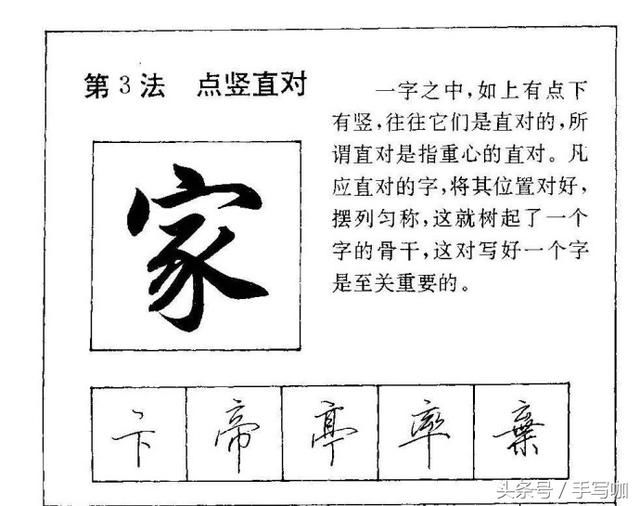 第3法 点竖直对
一字之中,如上有点下
有竖,往往它们是直对的,所
谓直对是指重心的直对。凡
应直对的字,将其位置对好,
摆列匀称,这就树起了一个
字的骨干,这对写好一个字
是至关重要的。
家
卞 帝 亭 率 棄
头条号 / 手写咖